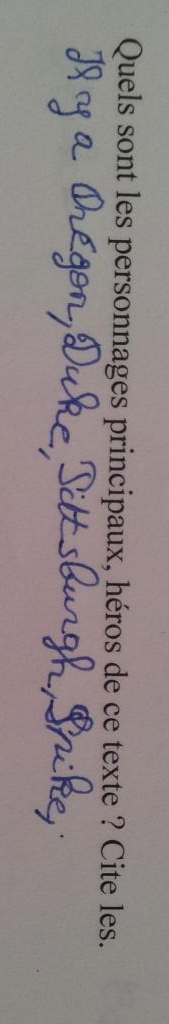 Quels sont les personnages principaux, héros de ce texte ? Cite les.
Il y a Orégon, Duke, Pittsburgh, Spike,.